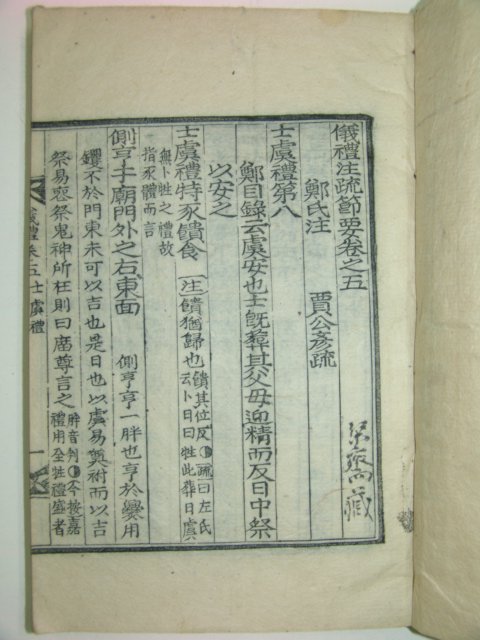 儀禮注疏節要卷之五
鄭氏注 賈公彥疏
士虞禮第八
鄭目錄云虞安也士旣葬其父母迎精而反日中祭
以安之
士虞禮特豕饋食 〔注〕饋猶歸也 饋其位反 疏曰左氏
云卜日曰牲此葬日虞
無卜牲之禮故
指豕體而言
側亨于廟門外之右東面 側亨亨一胖也亨於爨用
鑊不於門東未可以吉也是日也以虞易奠祔而以吉
祭易喪祭鬼神所在則曰廟尊言之 胖音判 今按嘉
禮用全牲禮盛者
儀禮 卷五 士虞禮
一
齋藏